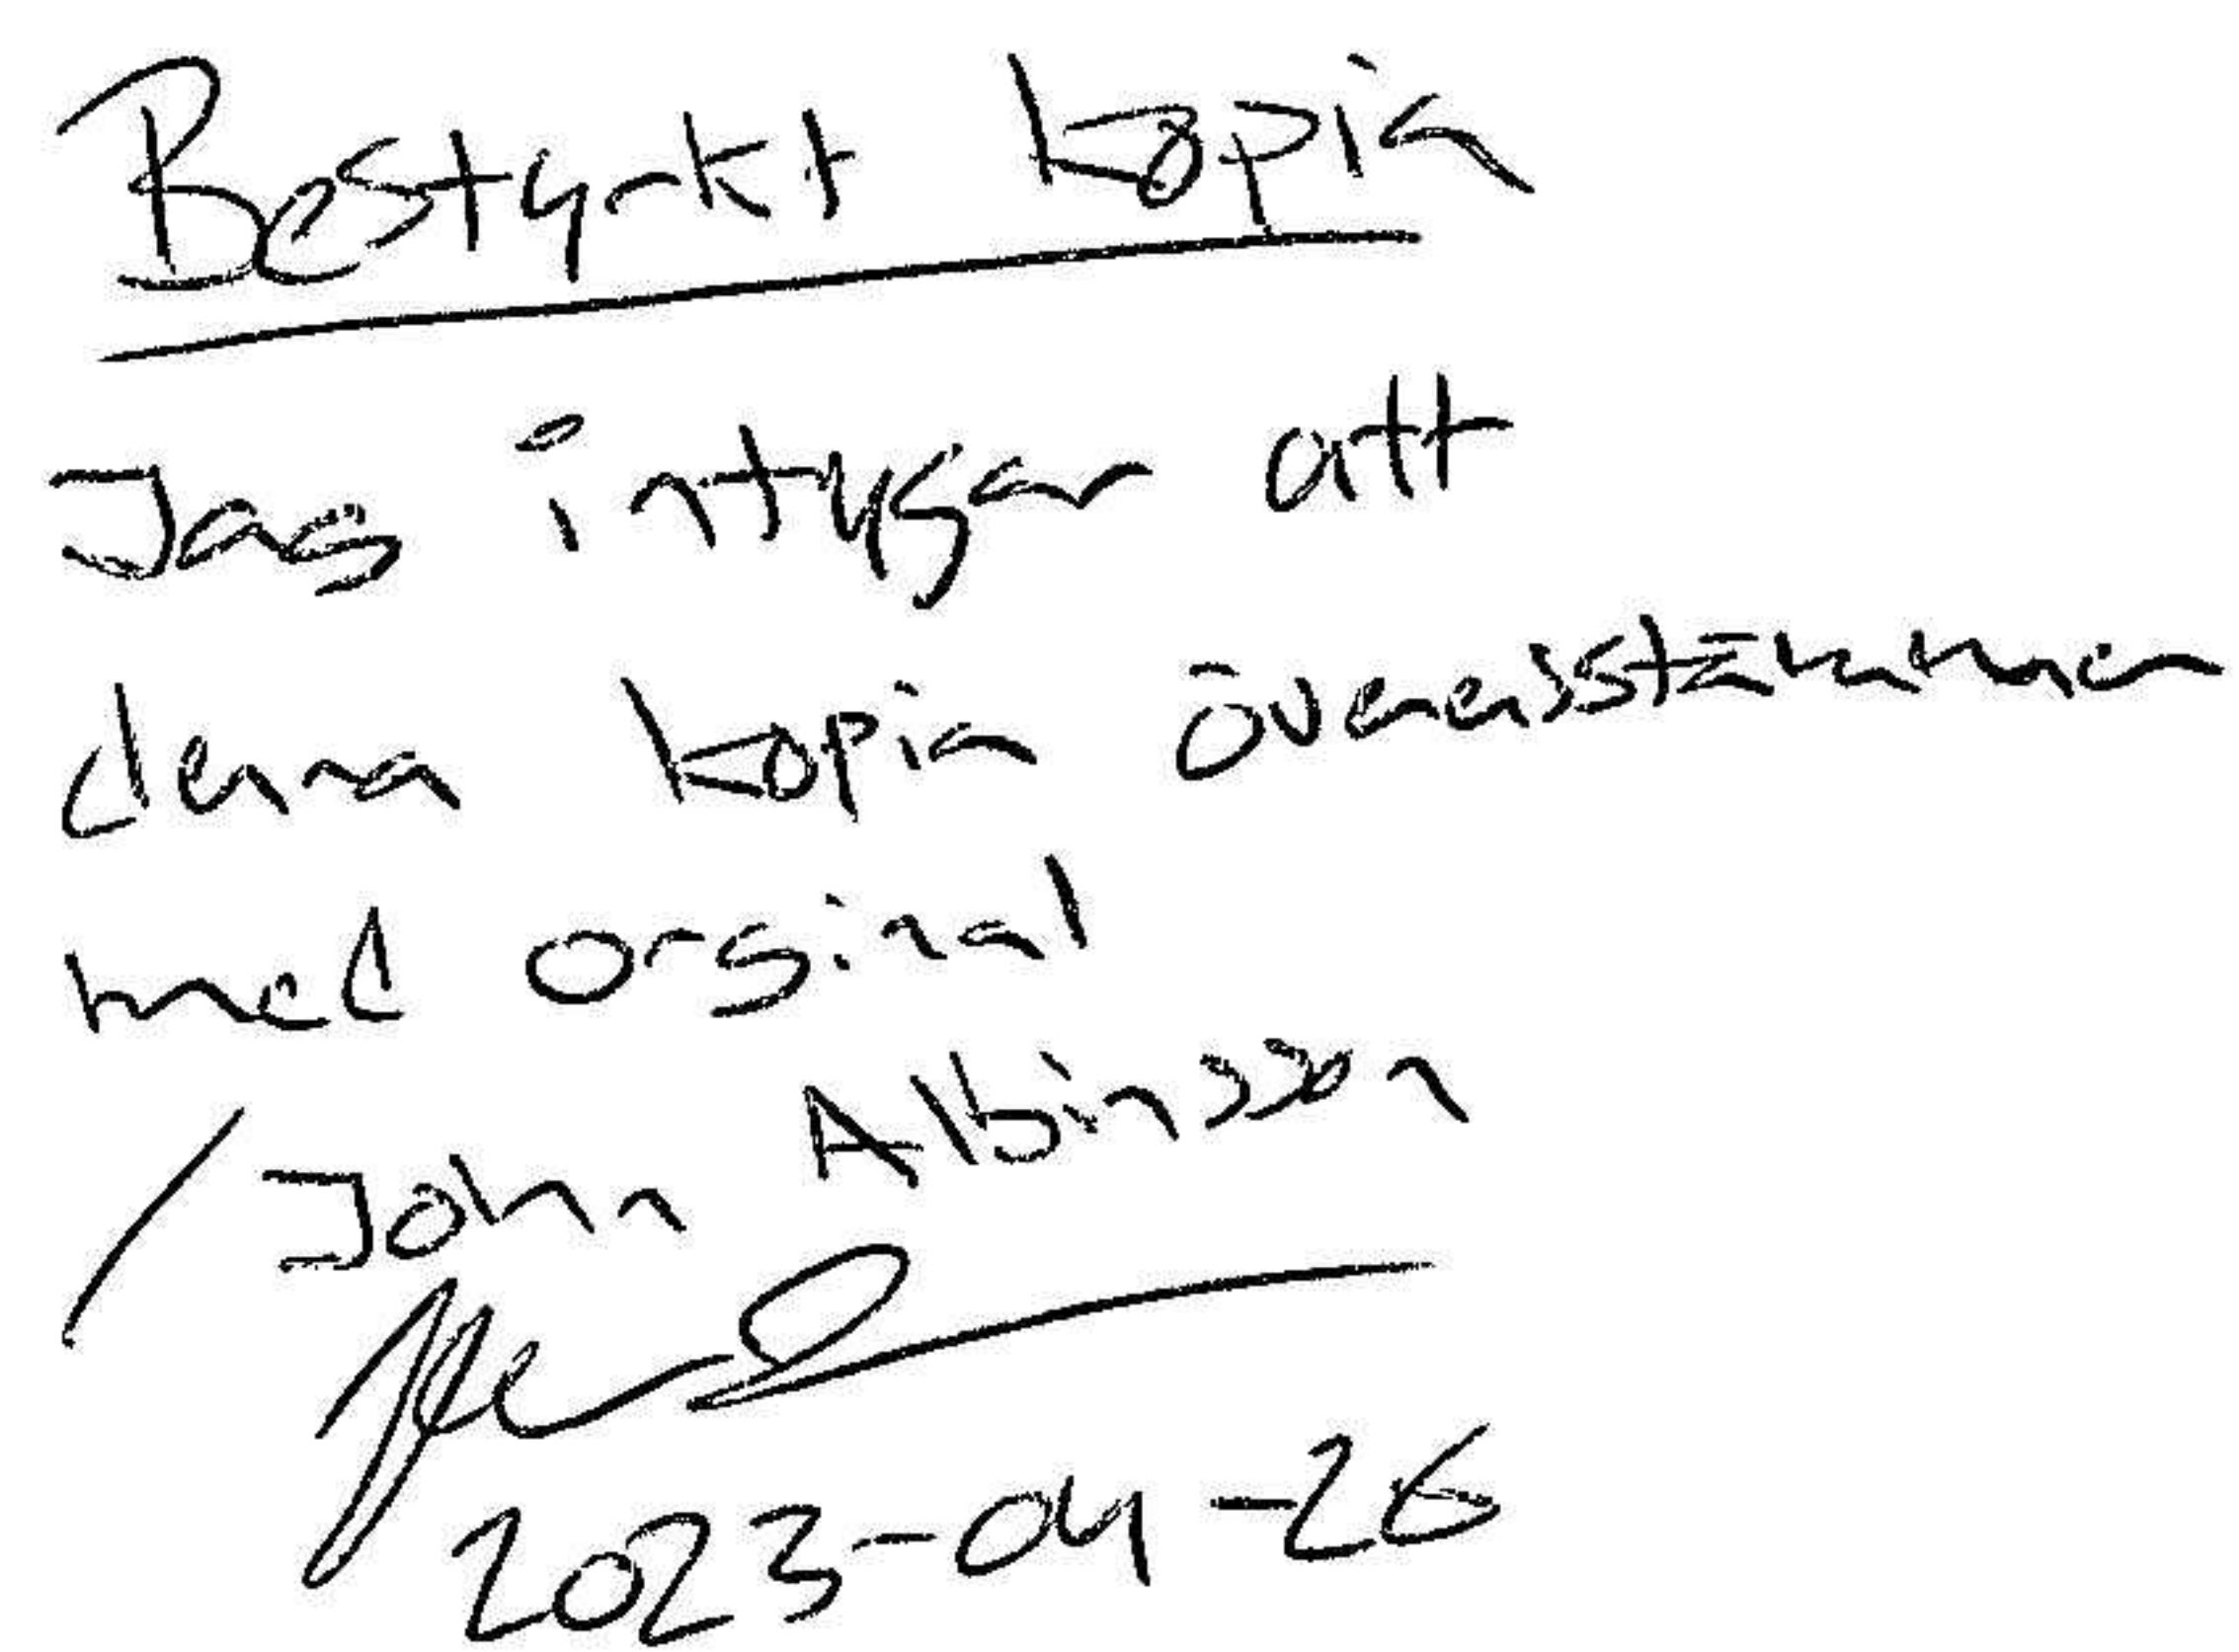 Bestyrkt kopia
Jag intygar att
denna kopia överensstämmer
med orginal
/John Albinsson
2023-04-26